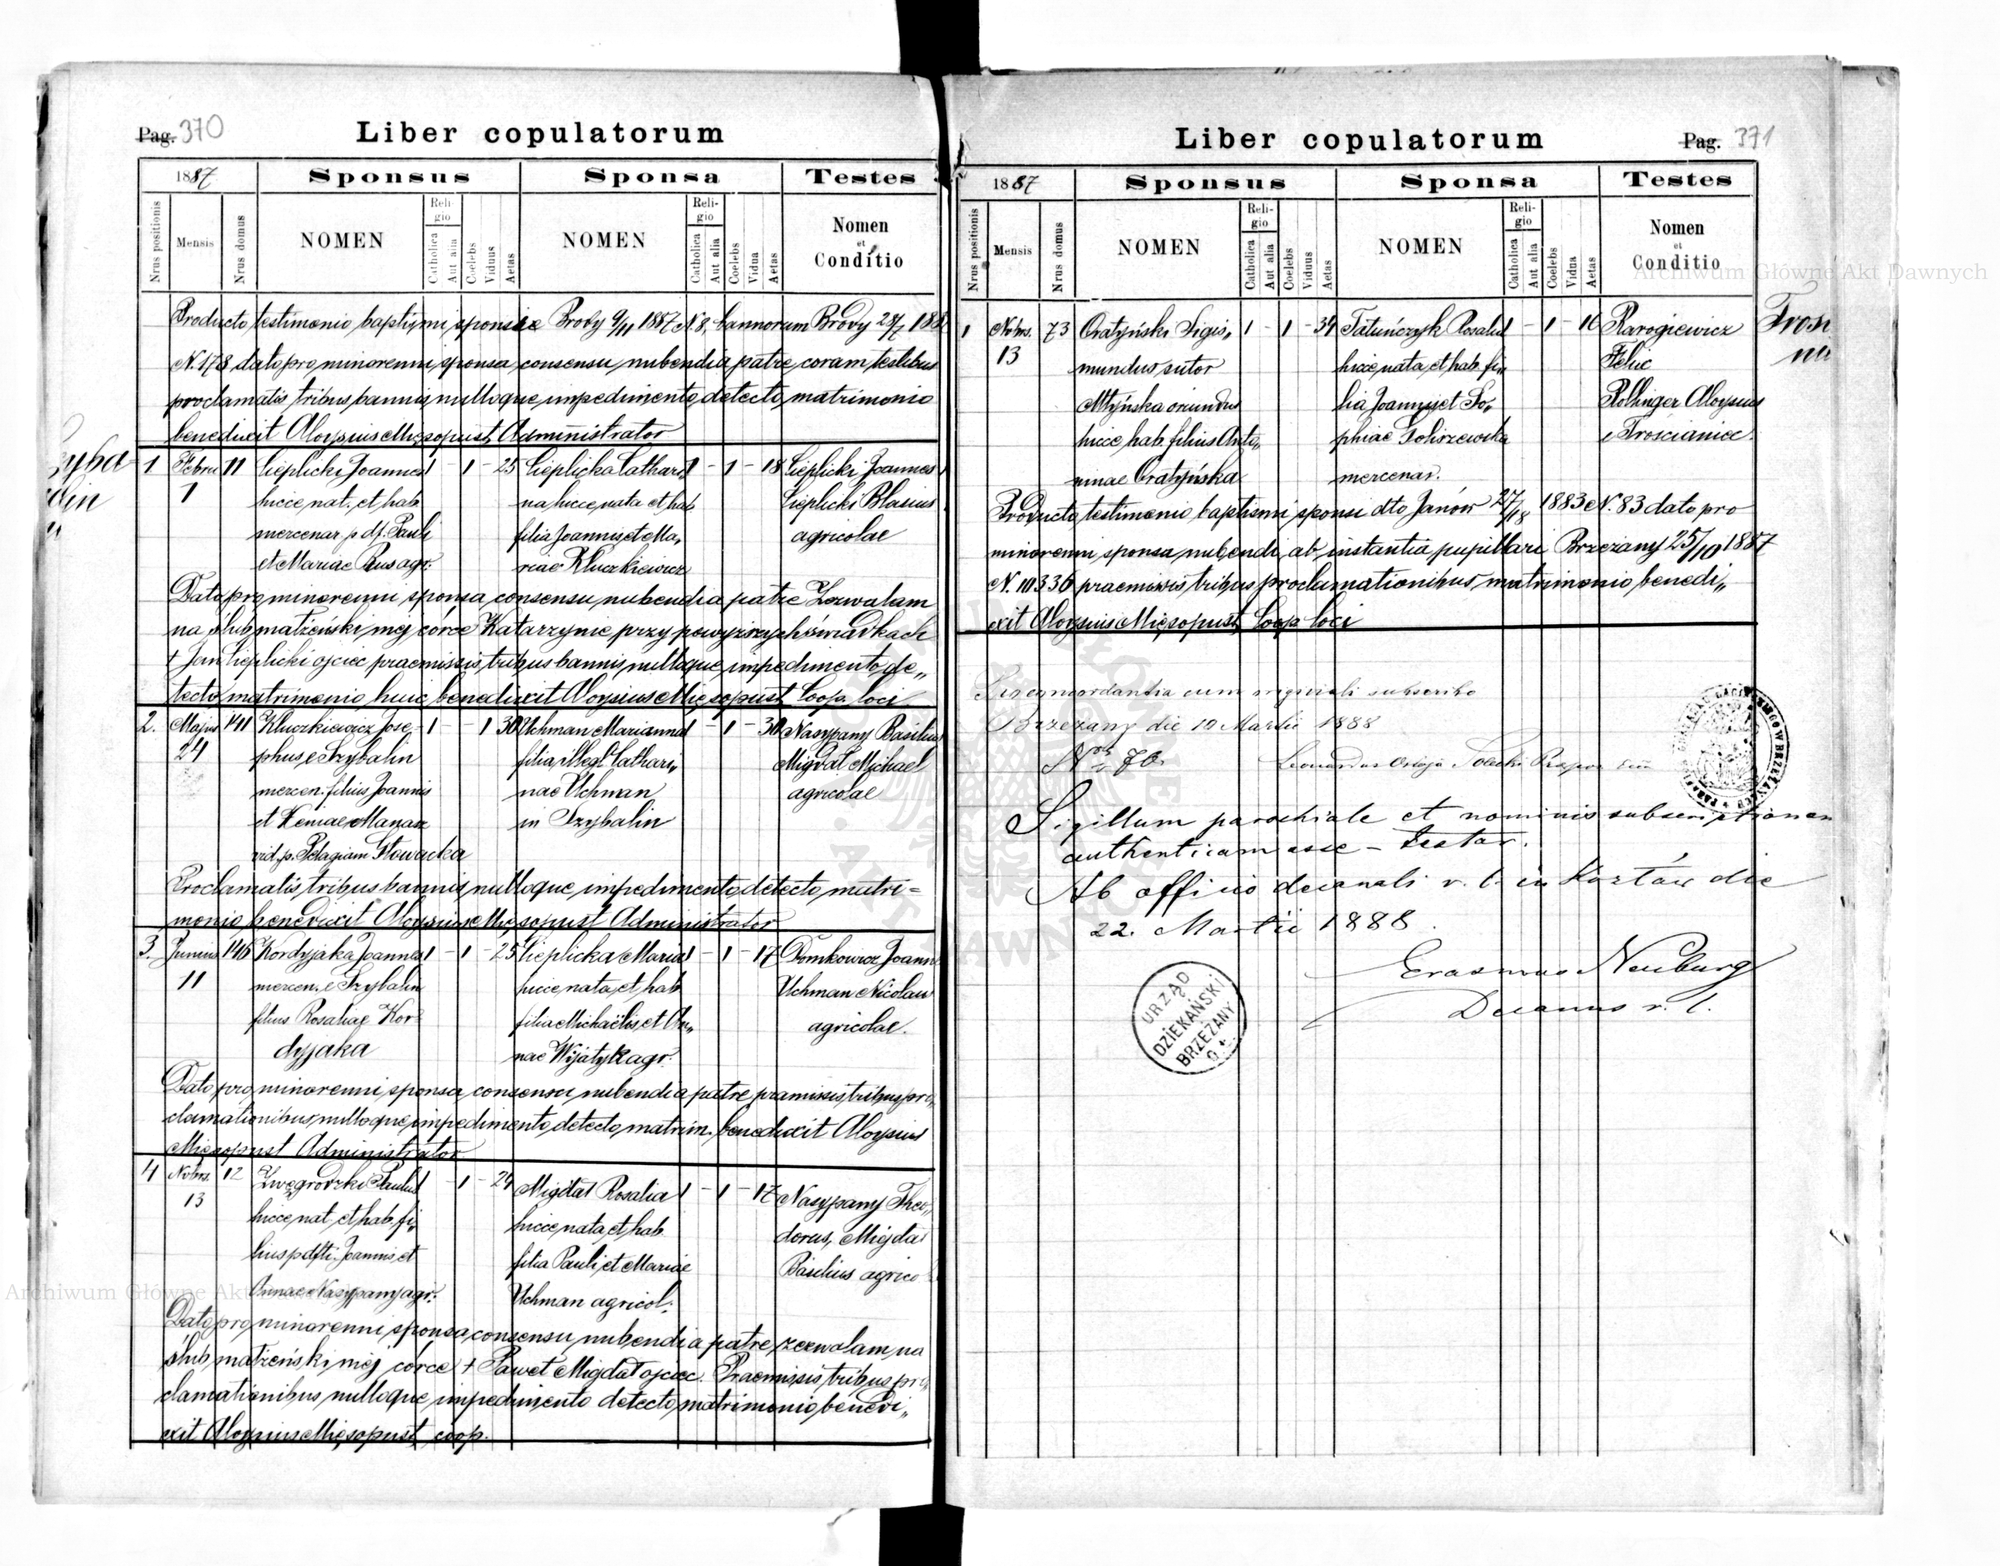 Pag. 370
Liber copulatorum
1887
Sponsus
Sponsa
Testes
Nrus positionis
Mensis
Nrus domus
NOMEN
Religio
Catholica
Aut alia
Coelebs
Viduus
Aetas
NOMEN
Religio
Catholica
Aut alia
Coelebs
Vidua
Aetas
Nomen
et
Conditio
Producto testimonio baptismi sponsae Brody 9/11 1887 N 8, bannorum Brody 188
N. 178 dato pro minorenni sponsa consensu nubendi a patre coram testibus
proclamatis tribus bannis nulloque impedimento detecto matrimonio
benedixit Aloysius Mięsopust Administrator
1 Febru 11 Cieplicki Joannes 1 - 1 - 25 Cieplicka Cathari 1 - 1 - 18 Cieplicki Joannes
hicce nat. et hab. na hicce nata et hab Cieplicki Blasius
mercenar p df. Pauli filia Joannis et Ma, agricolae
et Mariae Rus agr. riae Kluczkiewicz
Dato pro minorenni sponsa consensu nubendi a patre Zezwalam
na ślub małżeński mej córce Katarzynie przy powyższych świadkach
† Jan Cieplicki ojciec praemissis tribus bannis nulloque impedimento de„
tecto matrimonio huic benedixit Aloysius Mięsopust Coop. loci
2. Majus 141 Kluczkiewicz Jose, 1 - 1 30 Uchman Marianna 1 - 1 - 30 Nasypany Basilius
24 phus e Trybalin filia illegt. Cathari„ Migdał Michael
mercen. filius Joannis nae Uchman agricolae
et Xeniae Manasz in Trybalin
vid. p. Pelagiam Słowacka
Proclamatis tribus bannis nulloque impedimento detecto matri-
monio benedixit Aloysius Mięsopust Administrator
3. Junius 146 Kordyjaka Joannes 1 - 1 - 25 Cieplicka Maria 1 - 1 - 17 Domkowicz Joann
11 mercen. e Trybalin hicce nata et hab Uchman Nicolau
filius Rosaliae Kor- filia Michaëlis et An„ agricolae.
dyjaka nae Wijatyk agr.
Dato pro minorenni sponsa consensu nubendi a patre pramissis tribus pro„
clamationibus nulloque impedimento detecto matrim. benedixit Aloysius
Mięsopust Administrator
4 Nobrs. 12 Zwęgrodzki Paulus 1 - 1 - 24 Migdał Rosalia 1 - 1 - 17 Nasypany Theo„
13 hicce nat. et hab. fi„ hicce nata et hab dorus, Migdał
lius Joannis et filia Pauli et Mariae Basilius agrico
Annae Nasypany agr. Uchman agricol.
Dato pro minorenni sponsa consensu nubendi a patre zezwalam na
ślub małżeński mej córce † Paweł Migdał ojciec. Praemissis tribus pro
clamationibus nulloque impedimento detecto matrimonio benedi„
xit Aloysius Mięsopust coop.
Liber copulatorum
Pag. 371
1887
Sponsus
Sponsa
Testes
Nrus positionis
Mensis
Nrus domus
NOMEN
Religio
Catholica
Aut alia
Coelebs
Viduus
Aetas
NOMEN
Religio
Catholica
Aut alia
Coelebs
Vidua
Aetas
Nomen
et
Conditio
1 Nobrs. 73 Oratyński Sigis„ 1 - 1 - 34 Tatuńczyk Rosalia 1 - 1 - 16 Rarogiewicz
13 mundus sutor hicce nata et hab. fi„ Felix
Młyńska oriundus lia Joannis et So„ Pollinger Aloysius
hicce hab. filius Anto„ phiae Goliszewska e Troscianiec.
ninae Oratyńska mercenar.
Producto testimonio baptismi sponsi dto Janów 27/8 1883 N. 83 dato pro
minorenni sponsa nubendi ab instantia pupillari Brzezany 25/10 1887
N. 10336 praemissis tribus proclamationibus matrimonio benedi„
xit Aloysius Mięsopust Coop loci
concordantia cum originali subscribo
Brzezany die 10 Martii 1888
Nrus 70.
Leonardus Soleski
Sigillum parochiale et nominis subscriptionem
authenticam esse - testor.
Ab officio decanali r. l. in Kozłów die
22. Martii 1888.
Erasmus Neuburg
Decanus r. l.
URZĄD
DZIEKAŃSKI
BRZEŻANY
Archiwum Główne Akt Dawnych
Archiwum Główne Akt Dawnych